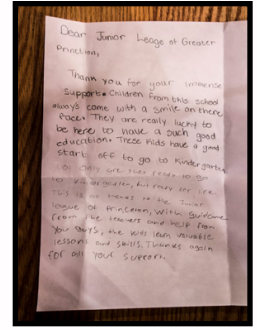 Dear Junior League of Greater
Princeton,
Thank you for your immense
support. Children from this school
always come with a smile on there
face. They are really lucky to
be here to have a such good
education. These kids have a good
start off to go to Kindergarten
only are they ready to go
to Kindergarten, but ready for
This is all thanks to the Junior
league of Princeton, With guidance
from the teachers and help from
the kids learn valuable
lessons and skills. Thanks again
for all your support.